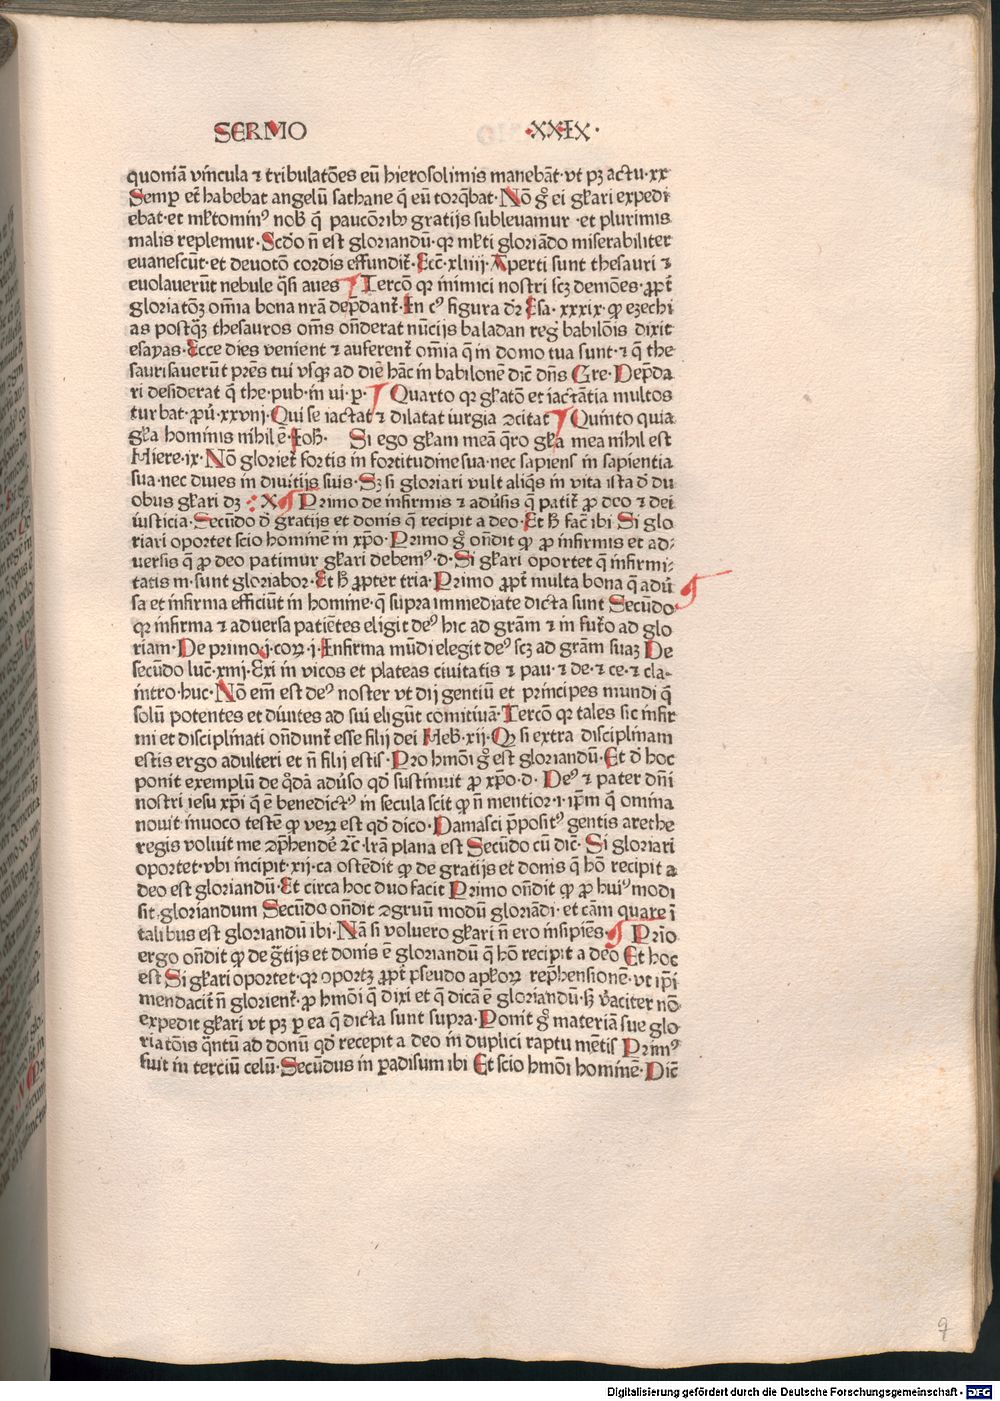 SERMO ·XXIX·
quoniā vīncula ⁊ tribulatōes eū hierosolimis manebāt·vt pꝫ actu·xx
Semꝑ et̄ habebat angelū sathane q̄ eū torq̄bat·Nō gͦ ei gl̄ari expedi
ebat·et ml̄tominꝰ nob̄ q̄ paucōribꝫ gratijs subleuamur ·et plurimis
malis replemur·Scdo n̄ est gloriandū·qꝛ ml̄ti gloriādo miserabiliter
euanescūt·et deuotō cordis effundit̄·Ecc̄·xliiij·Aperti sunt thesauri ⁊
euolauerūt nebule q̄si aues Tercō qꝛ inimici nostri scꝫ demōes·ꝓpt̄
gloriatōꝫ om̄ia bona nrā dep̄dant̄·In cꝰ figura dr̄ Esa·xxxix·ꝙ ezechi
as postq̄ꝫ thesauros om̄s on̄derat nūcijs baladan reḡ babilōis dixit
esayas·Ecce dies venient ⁊ auferent̄ om̄ia q̄ in domo tua sunt·⁊ q̄ the
saurisauerūt pr̄es tui vsqꝫ ad diē hāc in babilonē dic̄ dn̄s Gre·Dep̄da
ri desiderat q̄ the·pub·in ui·p· Quarto qꝛ gl̄atō et iactātia multos
turbat·ꝓu̅·xxvııj·Qui se iactat ⁊ dilatat iurgia ꝯcitat Quinto quia
gl̄a hominis nihil ē·Joh̄· Si ego gl̄am meā q̄ro gl̄a mea nihil est
Hiere·ix·Nō gloriet̄ fortis in fortitudine sua·nec sapiens in sapientia
sua·nec diues in diuitijs suis·Sꝫ si gloriari vult aliq̄s in vita ista d̄ du
obus gl̄ari dꝫ ·X· Primo de infirmis ⁊ adūsis q̄ patit̄ ꝓ deo ⁊ dei
iusticia·Secūdo d̄ gratijs et donis q̄ recipit a deo·Et h̄ fac̄ ibi Si glo
riari oportet scio hominē in xp̄o·Primo gͦ on̄dit ꝙ ꝓ infirmis et ad⸗
uersis q̄ ꝓ deo patimur gl̄ari debemꝰ·d·Si gl̄ari oportet q̄ infirmi⸗
tatis m̄ sunt gloriabor·Et h̄ ꝓpter tria·Primo ꝓpt̄ multa bona q̄ adū
sa et infirma efficiūt in homine·q̄ supra immediate dicta sunt Secūdo
qꝛ infirma ⁊ aduersa patiētes eligit deꝰ hic ad grām ⁊ in fut̄o ad glo
riam·De primo j·coꝝ·j·Infirma mūdi elegit deꝰ scꝫ ad grām suaꝫ De
secūdo luc̄·xıııj·Exi in vicos et plateas ciuitatis ⁊ pau·⁊ de·⁊ ce·⁊ cla⸗
intro·huc·Nō em̄ est deꝰ noster vt dij gentiū et principes mundi q̄
solū potentes et diuites ad sui eligūt comitiuā·Tercō qꝛ tales sic infir
mi et disciplinati on̄dunt̄ esse filij dei Heb̄·xij·Qꝫ si extra disciplinam
estis ergo adulteri et n̄ filij estis·Pro hm̄oi gͦ est gloriandū·Et d̄ hoc
ponit exemplū de q̄dā adūso qd̄ sustinuit ꝓ xp̄o·d·Deꝰ ⁊ pater dn̄i
nostri iesu xp̄i q̄ ē benedictꝰ in secula scit ꝙ n̄ mentior·i·ip̄m q̄ omina
nouit inuoco testē ꝙ veꝝ est qd̄ dico·Damasci p̄positꝰ gentis arethe
regis voluit me ꝯp̄hendē ⁊c̄·lr̄a plana est Secūdo cū dic̄·Si gloriari
oportet·vbi incipit·xij·ca ostēdit ꝙ de gratijs et donis q̄ hō recipit a
deo est gloriandū·Et circa hoc duo facit Primo on̄dit ꝙ ꝓ huiꝰmodi
sit gloriandum Secūdo on̄dit ꝯgruū modū gloriādi·et cām quare ī
talibus est gloriandū ibi·Nā si voluero gl̄ari n̄ ero īnsipiēs· Prīo
ergo on̄dit ꝙ de gr̄tijs et donis ē gloriandū q̄ hō recipit a deo Et hoc
est Si gl̄ari oportet·qꝛ oportꝫ ꝓpt̄ pseudo apl̄oꝝ rep̄hensionē·vt ip̄i
mendacit̄ n̄ glorient̄·ꝓ hm̄oi q̄ dixi et q̄ dicā ē gloriandū·h̄ v̄aciter nō
expedit gl̄ari vt pꝫ ꝑ ea q̄ dicta sunt supra·Ponit gͦ materiā sue glo
riatōis q̄ntū ad donū qd̄ recepit a deo in duplici raptu mētis Primꝰ
fuit in terciū celū·Secūdus in padisum ibi Et scio hm̄oi hominē·Dic̄
9
Digitalisierung gefördert durch die Deutsche Forschungsgemeinschaft - DFG